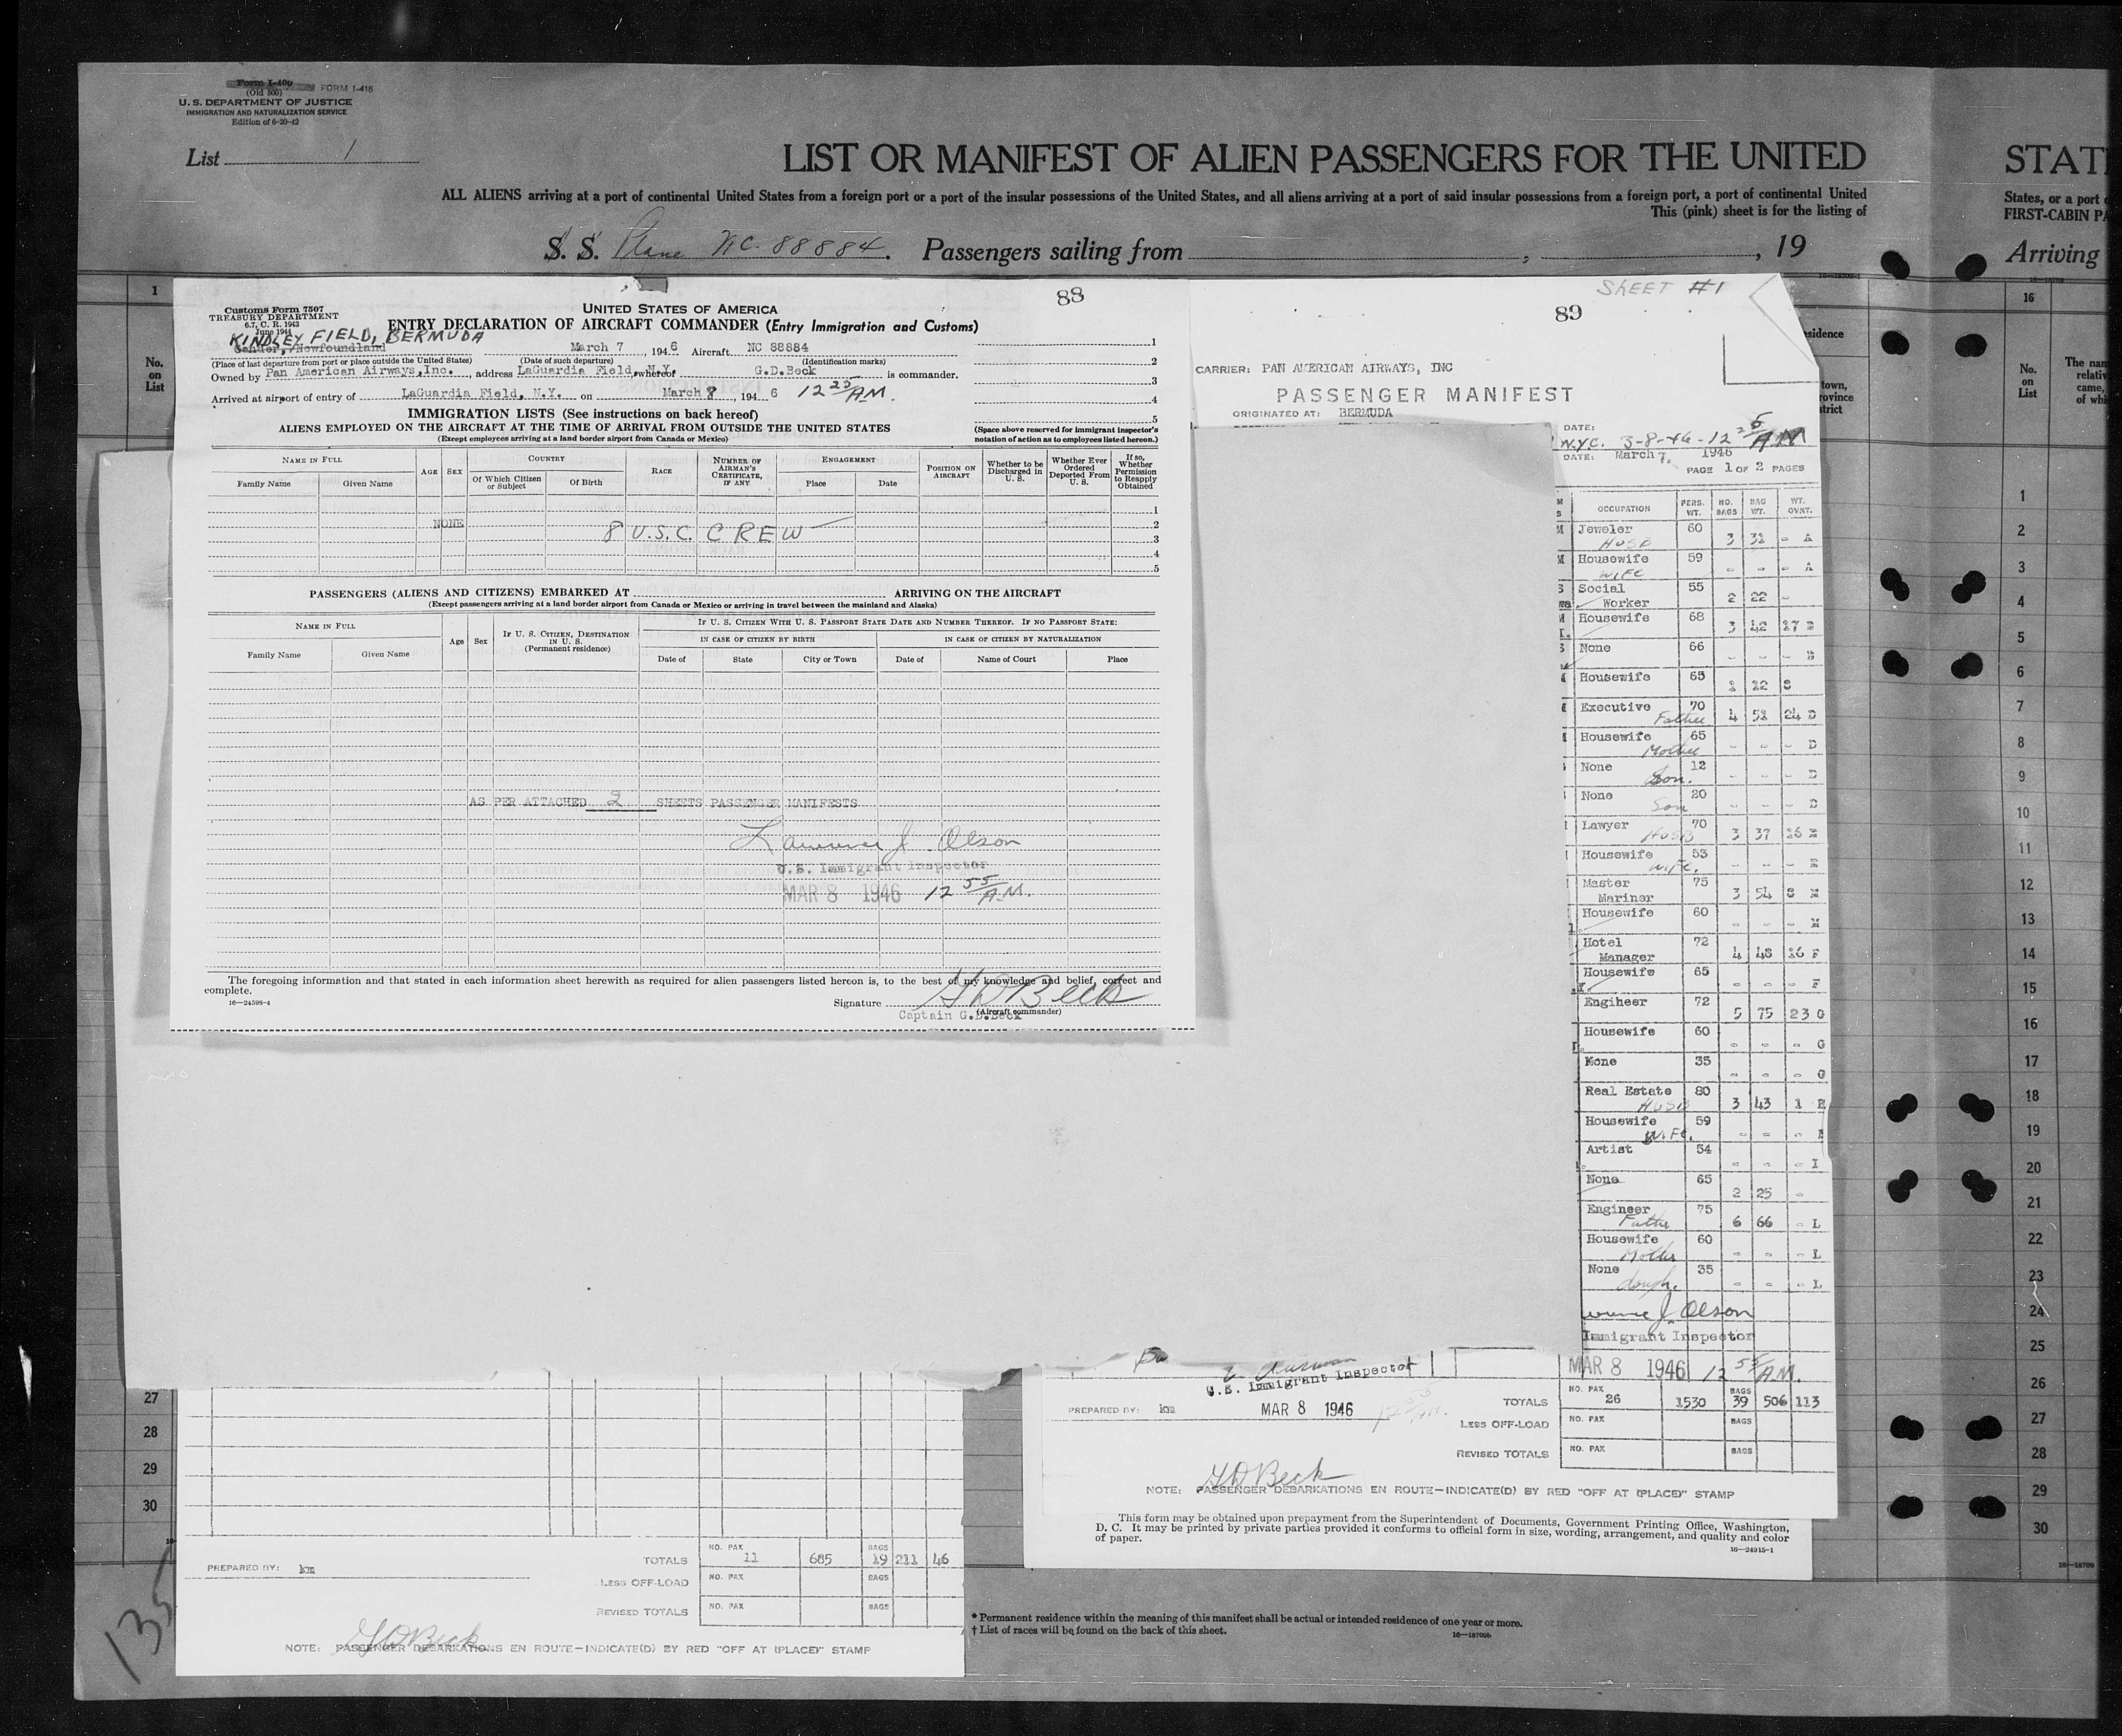 Form I-400 FORM I-416
(Old 500)
U. S. DEPARTMENT OF JUSTICE
IMMIGRATION AND NATURALIZATION SERVICE
Edition of 6-20-42
List 1
LIST OR MANIFEST OF ALIEN PASSENGERS FOR THE UNITED
STAT
ALL ALIENS arriving at a port of continental United States from a foreign port or a port of the insular possessions of the United States, and all aliens arriving at a port of said insular possessions from a foreign port, a port of continental United
States, or a port
This (pink) sheet is for the listing of
FIRST-CABIN PA
S. S. Plane NC. 88884. Passengers sailing from , , 19
Arriving
1
No.
on
List
88
Customs Form 7507
TREASURY DEPARTMENT
6.7, C. R. 1943
June 1944
UNITED STATES OF AMERICA
ENTRY DECLARATION OF AIRCRAFT COMMANDER (Entry Immigration and Customs)
KINDLEY FIELD, BERMUDA
Gander, Newfoundland March 7, 1946 Aircraft NC 88884
(Place of last departure from port or place outside the United States) (Date of such departure) (Identification marks)
Owned by Pan American Airways,Inc., address LaGuardia Field, N.Y. whereof G.D.Beck is commander.
Arrived at airport of entry of LaGuardia Field, N.Y. on March 8, 1946 12 25/AM.
1
2
3
4
5
IMMIGRATION LISTS (See instructions on back hereof)
ALIENS EMPLOYED ON THE AIRCRAFT AT THE TIME OF ARRIVAL FROM OUTSIDE THE UNITED STATES
(Except employees arriving at a land border airport from Canada or Mexico)
(Space above reserved for immigrant inspector's
notation of action as to employees listed hereon.)
NAME IN FULL
Family Name Given Name
AGE SEX
COUNTRY
Of Which Citizen or Subject Of Birth
RACE
NUMBER OF AIRMAN'S CERTIFICATE, IF ANY
ENGAGEMENT
Place Date
POSITION ON AIRCRAFT
Whether to be Discharged in U. S.
Whether Ever Ordered Deported From U. S.
If so, Whether Permission to Reapply Obtained
1
NONE 2
8 U.S.C. CREW
3
4
5
PASSENGERS (ALIENS AND CITIZENS) EMBARKED AT ARRIVING ON THE AIRCRAFT
(Except passengers arriving at a land border airport from Canada or Mexico or arriving in travel between the mainland and Alaska)
NAME IN FULL
Family Name Given Name
Age Sex
IF U. S. CITIZEN, DESTINATION IN U. S.
(Permanent residence)
IF U. S. CITIZEN WITH U. S. PASSPORT STATE DATE AND NUMBER THEREOF. IF NO PASSPORT STATE:
IN CASE OF CITIZEN BY BIRTH IN CASE OF CITIZEN BY NATURALIZATION
Date of State City or Town Date of Name of Court Place
AS PER ATTACHED 2 SHEETS PASSENGER MANIFESTS
Lawrence J. Olson
U.S. Immigrant Inspector
MAR 8 1946 12 55/A.M.
The foregoing information and that stated in each information sheet herewith as required for alien passengers listed hereon is, to the best of my knowledge and belief, correct and
complete.
16—24598-4
Signature G D Beck
(Aircraft commander)
Captain G.D.Beck
SHEET #1
89
CARRIER: PAN AMERICAN AIRWAYS, INC
PASSENGER MANIFEST
ORIGINATED AT: BERMUDA
DATE:
N.Y.C. 3-8-46-12 25/AM
DATE: March 7, 1946
PAGE 1 OF 2 PAGES
OCCUPATION PERS. WT. NO. BAGS BAG WT. WT. OVNT.
Jeweler 60
HUSB 3 32 - A
Housewife 59
WIFE - - - A
Social 55
Worker 2 22 -
Housewife 68
3 42 27 B
None 66
- - - B
Housewife 65
2 22 8
Executive 70
Father 4 52 24 D
Housewife 65
Mother - - - D
None 12
Son. - - - D
None 20
Son - - - D
Lawyer 70
HUSB 3 37 26 E
Housewife 53
Wife. - - - E
Master 75
Mariner 3 54 8 M
Housewife 60
- - - M
Hotel 72
Manager 4 48 26 F
Housewife 65
- - - F
Engineer 72
5 75 23 G
Housewife 60
- - - G
None 35
- - - G
Real Estate 80
HUSB 3 43 1 H
Housewife 59
WIFE. - - -
Artist 54
- - - I
None 65
2 25 -
Engineer 75
Father 6 66 - L
Housewife 60
Mother - - - L
None 35
daugh. - - - L
J. Olson
Immigrant Inspector
MAR 8 1946 12 55/AM.
U.S. Immigrant Inspector
PREPARED BY: lom MAR 8 1946
TOTALS NO. PAX 26 1530 BAGS 39 506 113
LESS OFF-LOAD NO. PAX BAGS
REVISED TOTALS NO. PAX BAGS
G D Beck
NOTE: PASSENGER DEBARKATIONS EN ROUTE—INDICATE(D) BY RED "OFF AT (PLACE)" STAMP
This form may be obtained upon prepayment from the Superintendent of Documents, Government Printing Office, Washington,
D. C. It may be printed by private parties provided it conforms to official form in size, wording, arrangement, and quality and color
of paper.
16—24915-1
27
28
29
30
PREPARED BY: lom
TOTALS NO. PAX 11 685 BAGS 19 211 46
LESS OFF-LOAD NO. PAX BAGS
REVISED TOTALS NO. PAX BAGS
G D Beck
NOTE: PASSENGER DEBARKATIONS EN ROUTE—INDICATE(D) BY RED "OFF AT (PLACE)" STAMP
135
* Permanent residence within the meaning of this manifest shall be actual or intended residence of one year or more.
† List of races will be found on the back of this sheet.
16—18709b
sidence
town,
rovince
strict
16
No.
on
List
The nam
relativ
came,
of whi
1
2
3
4
5
6
7
8
9
10
11
12
13
14
15
16
17
18
19
20
21
22
23
24
25
26
27
28
29
30
16—18709